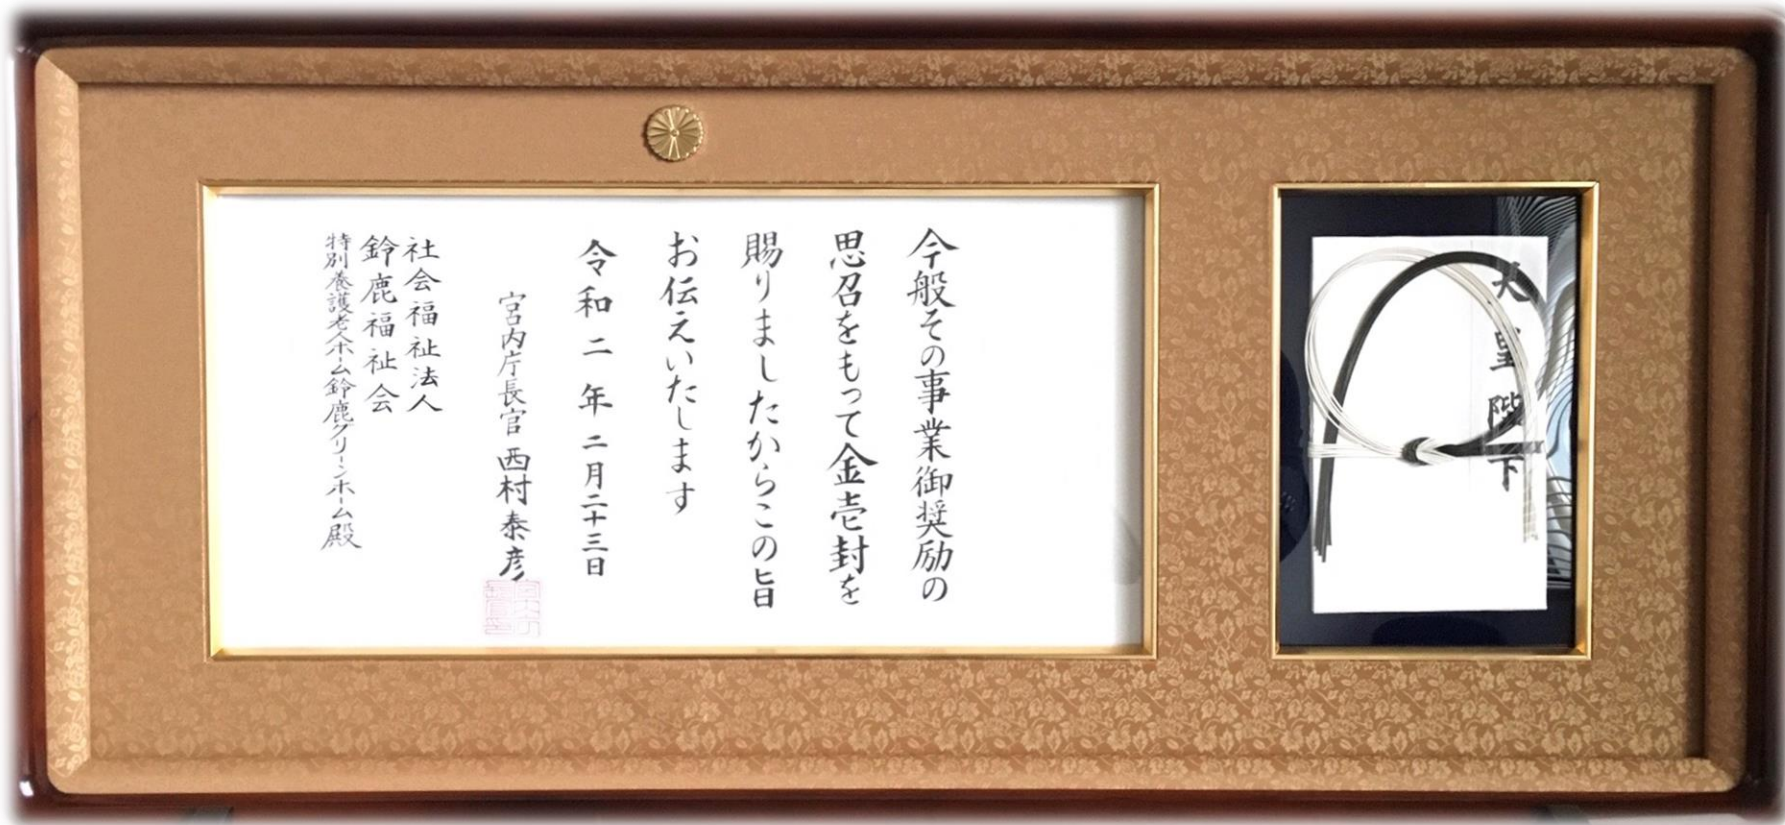 今般その事業御奨励の
思召をもって金壱封を
賜りましたからこの旨
お伝えいたします
令和二年二月二十三日
宮内庁長官 西村泰彦
社会福祉法人
鈴鹿福祉会
特別養護老人ホーム鈴鹿グリーンホーム殿
天皇陛下